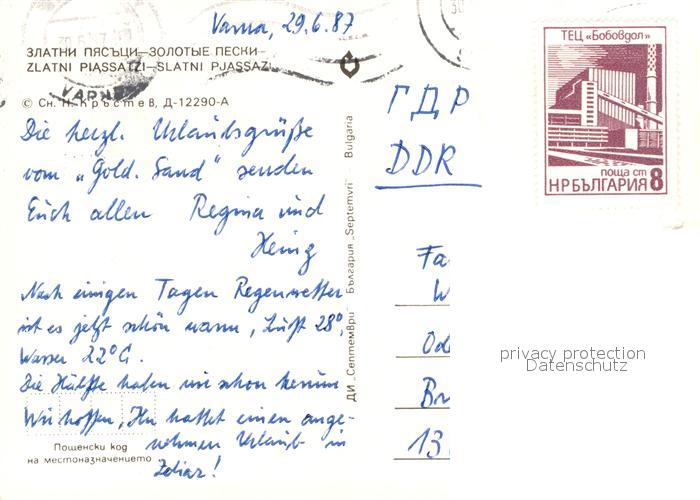 Varna, 29.6.87
ЗЛАТНИ ПЯСЪЦИ—ЗОЛОТЫЕ ПЕСКИ—
ZLATNI PIASSATZI—SLATNI PJASSAZI
© Сн. Н. Кръстев, Д-12290-А
Die herzl. Urlaubsgrüße
vom „Gold. Sand" senden
Euch allen Regina und
Heinz
Nach einigen Tagen Regenwetter
ist es jetzt schön warm, Luft 28°,
Wasser 22°C.
Die Hälfte haben wir schon herum
Wir hoffen, Ihr hattet einen ange-
nehmen Urlaub in
Zdiar!
Пощенски код
на местоназначението
ДИ „Септември" България „Septemvri" Bulgaria
ГДР
DDR
Fa
W
Od
Br
13
ТЕЦ «Бобовдол»
поща ст
НРБЪЛГАРИЯ 8
privacy protection
Datenschutz